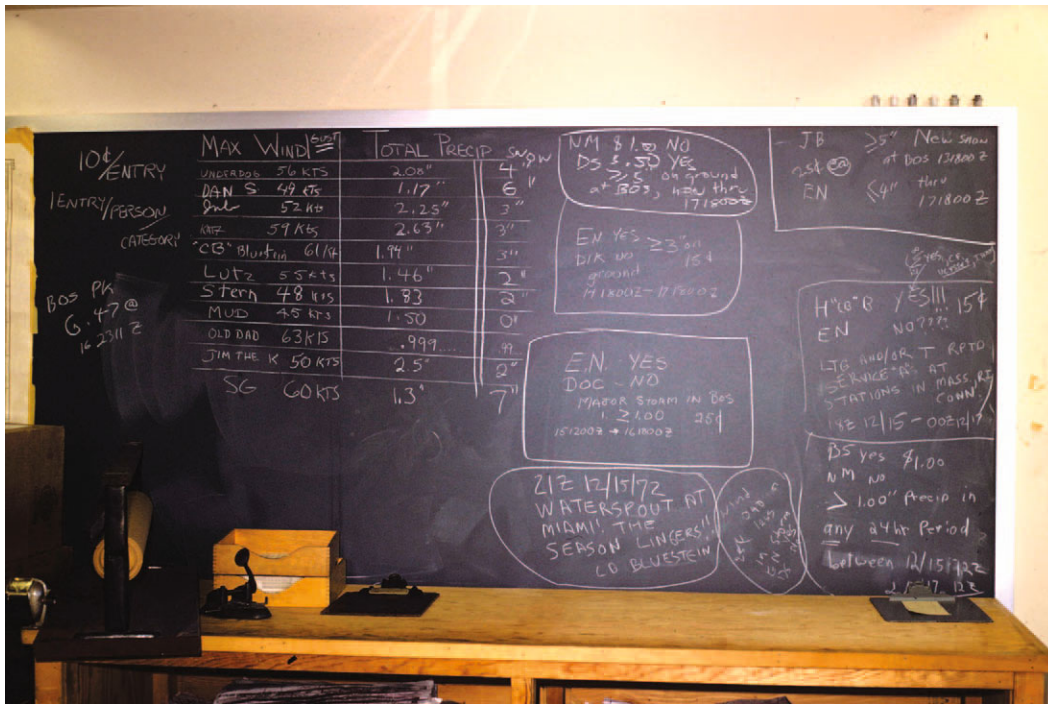 10¢/ENTRY
1 ENTRY/PERSON/
CATEGORY
BOS PK
6.47@
16 2311 Z
MAX WIND GUST TOTAL PRECIP SNOW
UNDERDOG 56 KTS 2.08" 4"
DAN S 49 KTS 1.17" 6"
52 KTS 2.25" 3"
KATZ 59 KTS 2.63" 3"
"CB" Bluestein 61 1.94" 3"
LUTZ 55 KTS 1.46" 2"
Stern 48 KTS 1.83 2"
MUD 45 KTS 1.50 0"
OLD DAD 63 KTS .999.... .99
JIM THE K 50 KTS 2.5" 2"
SG 60 KTS 1.3" 7"
NM $1.50 NO
DS $.50 YES
≥.5" on ground
at BOS, now thru
171800Z
EN YES ≥3" on
NO 15¢
ground
E.N. YES
DOC - NO
MAJOR STORM IN BOS
≥1.00 25¢
151200Z → 161800Z
21Z 12/15/72
WATERSPOUT AT
MIAMI! THE
SEASON LINGERS!!
BLUESTEIN
wind
JB ≥5" New snow
at BOS 131800Z
25¢
EN <4" thru
171800Z
H"CB"B YES!!! 15¢
EN NO???
LTG AND/OR T RPTD
SERVICE "A" AT
STATIONS IN MASS, RI,
CONN,
18Z 12/15 - 00Z 12/17
BS yes $1.00
NM NO
> 1.00" Precip in
any 24 hr Period
between 12/15/72
12Z